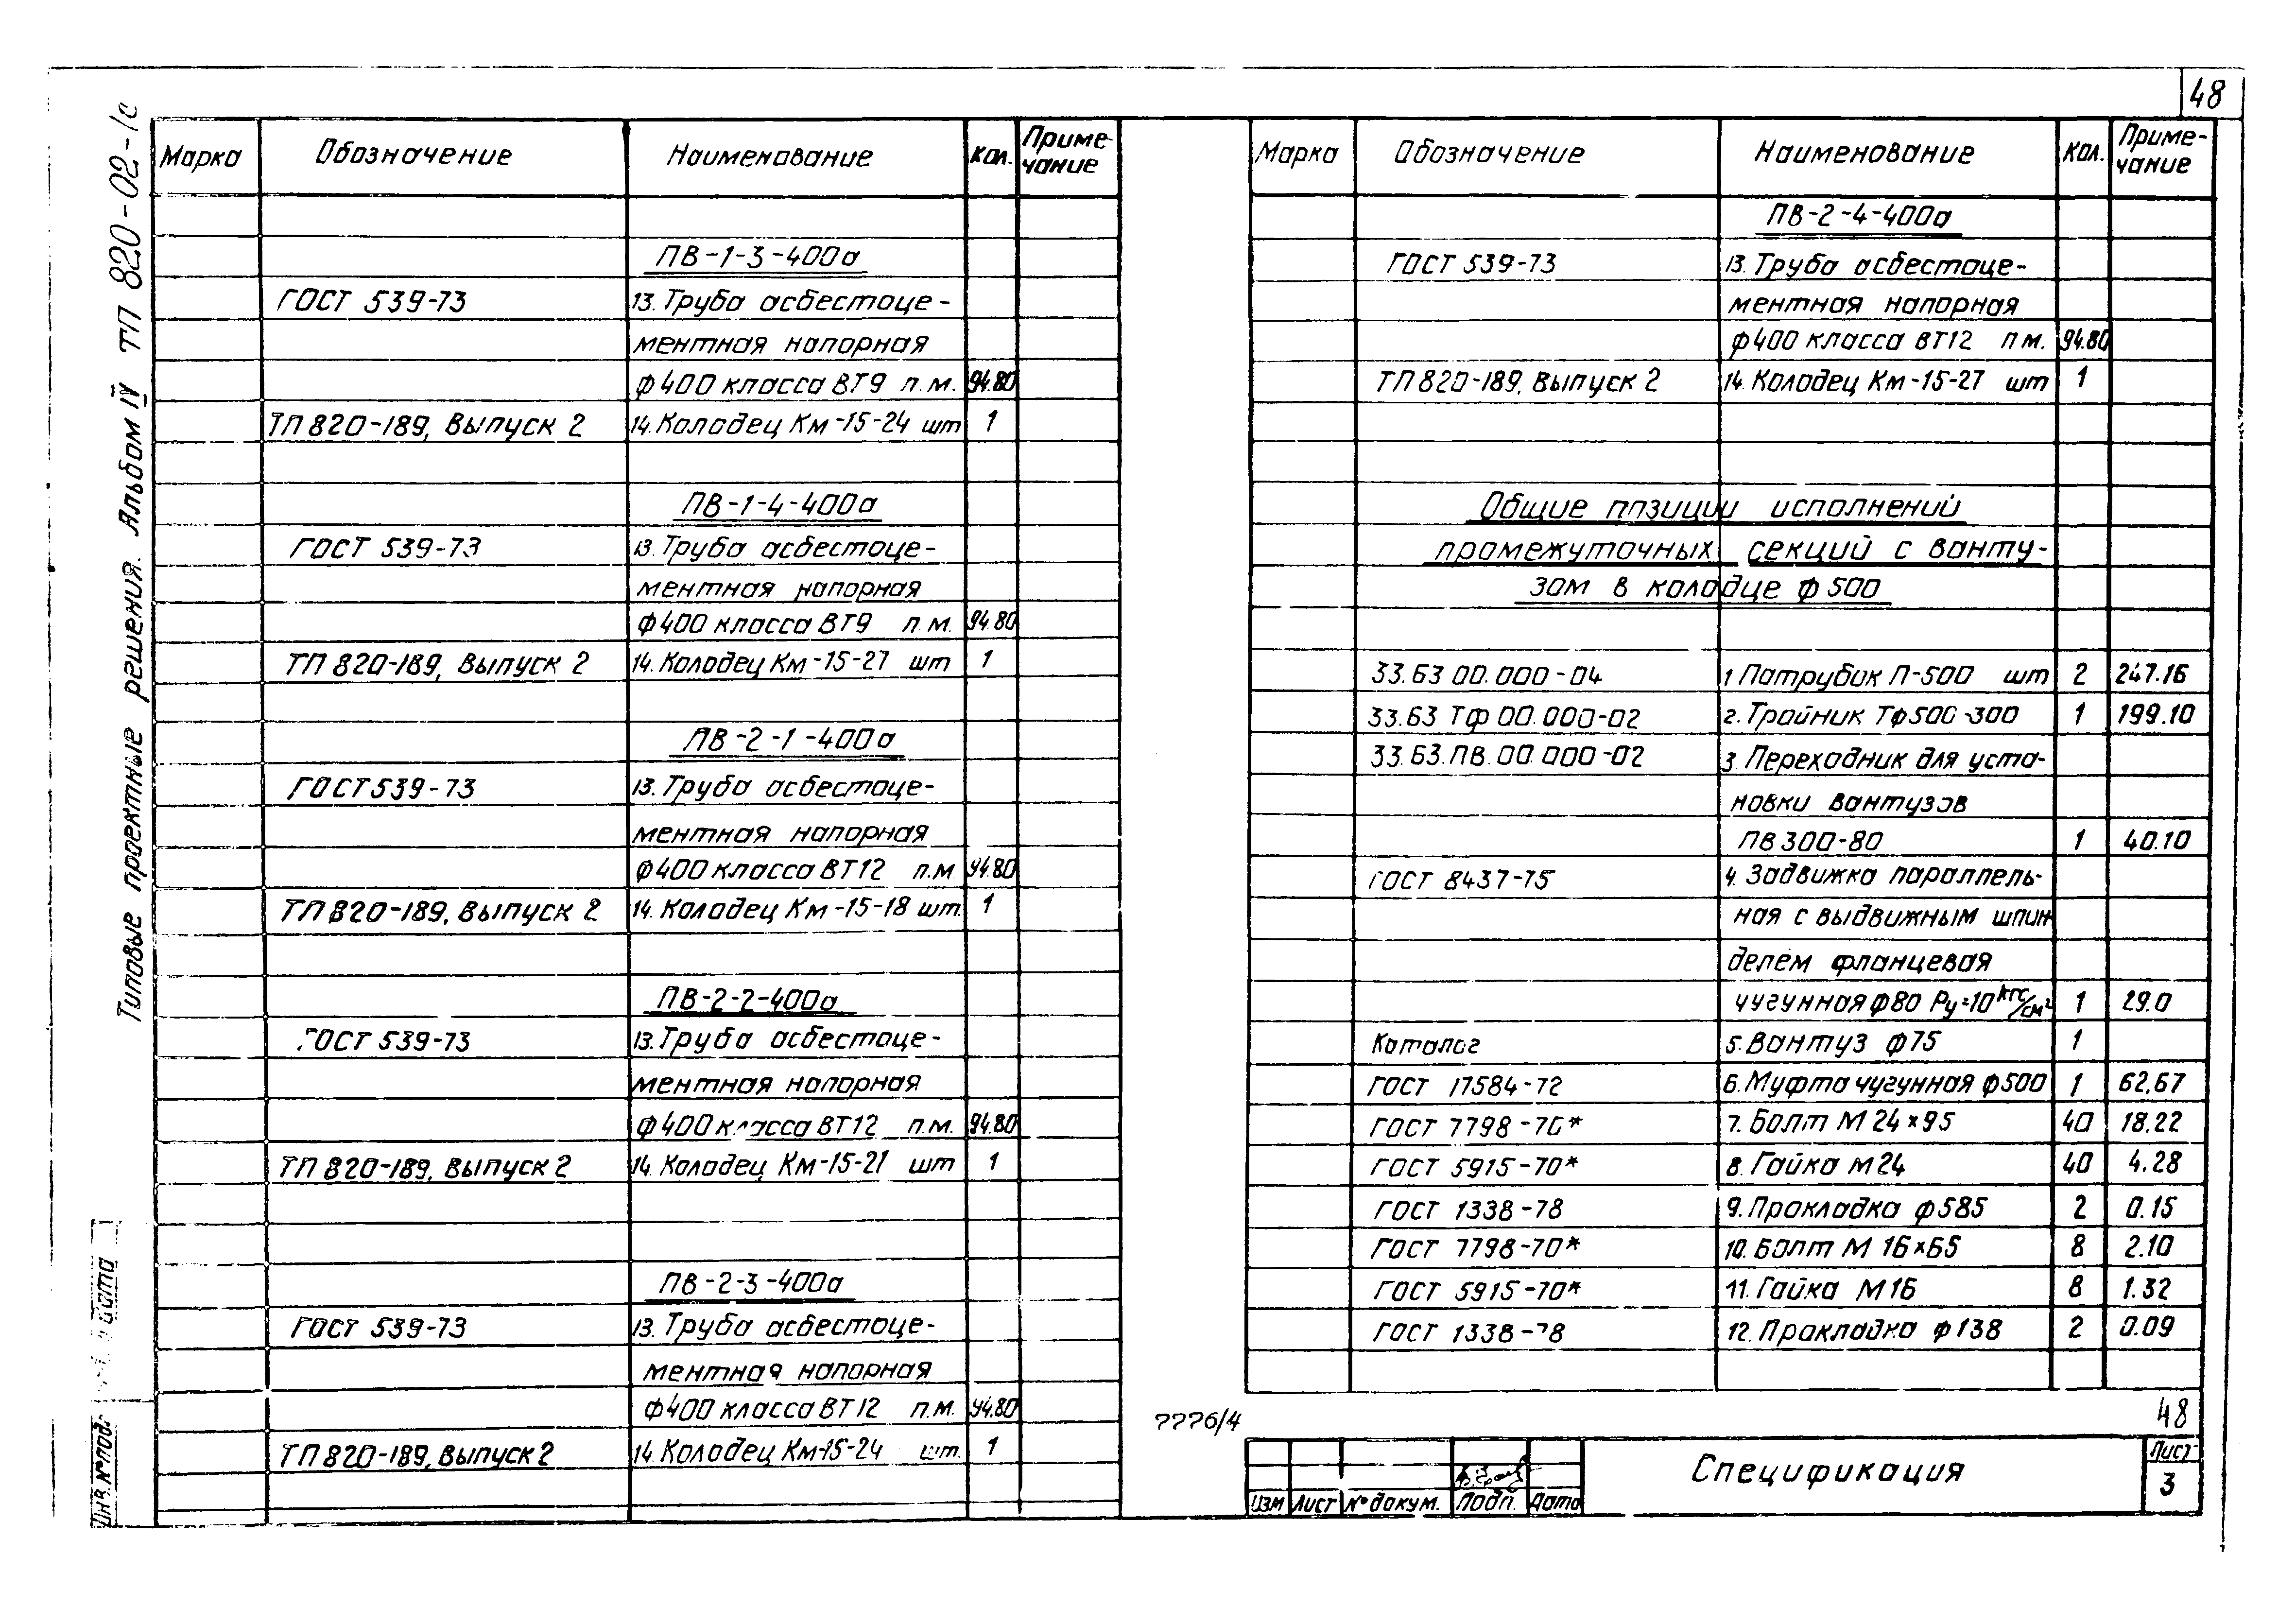 48
Типовые проектные решения. Альбом IV ТП 820-02-
Марка Обозначение Наименование Кол. Приме-чание
ПВ-1-3-400а
ГОСТ 539-73 13. Труба асбестоце-
ментная напорная
ф400 класса ВТ9 п.м. 94.80
ТП 820-189, Выпуск 2 14. Колодец Км-15-24 шт 1
ПВ-1-4-400а
ГОСТ 539-73 13. Труба асбестоце-
ментная напорная
ф400 класса ВТ9 п.м. 94.80
ТП 820-189, Выпуск 2 14. Колодец Км-15-27 шт 1
ПВ-2-1-400а
ГОСТ 539-73 13. Труба асбестоце-
ментная напорная
ф400 класса ВТ12 п.м. 94.80
ТП 820-189, Выпуск 2 14. Колодец Км-15-18 шт. 1
ПВ-2-2-400а
ГОСТ 539-73 13. Труба асбестоце-
ментная напорная
ф400 класса ВТ12 п.м. 94.80
ТП 820-189, Выпуск 2 14. Колодец Км-15-21 шт 1
ПВ-2-3-400а
ГОСТ 539-73 13. Труба асбестоце-
ментная напорная
ф400 класса ВТ12 п.м. 94.80
ТП 820-189, Выпуск 2 14. Колодец Км-15-24 шт. 1
Марка Обозначение Наименование Кол. Приме-чание
ПВ-2-4-400а
ГОСТ 539-73 13. Труба асбестоце-
ментная напорная
ф400 класса ВТ12 п м. 94.80
ТП 820-189, Выпуск 2 14. Колодец Км-15-27 шт 1
Общие позиции исполнений
промежуточных секций с ванту-
зом в колодце ф 500
33.63.00.000-04 1. Патрубок П-500 шт 2 247.16
33.63 ТФ 00.000-02 2. Тройник ТФ500-300 1 199.10
33.63.ПВ.00.000-02 3. Переходник для уста-
новки вантузов
ПВ 300-80 1 40.10
ГОСТ 8437-75 4. Задвижка параллель-
ная с выдвижным шпин
делем фланцевая
чугунная ф80 Ру=10 кгс/см² 1 29.0
Каталог 5. Вантуз ф75 1
ГОСТ 17584-72 6. Муфта чугунная ф500 1 62,67
ГОСТ 7798-70* 7. Болт М 24×95 40 18.22
ГОСТ 5915-70* 8. Гайка М24 40 4.28
ГОСТ 1338-78 9. Прокладка ф585 2 0.15
ГОСТ 7798-70* 10. Болт М 16×65 8 2.10
ГОСТ 5915-70* 11. Гайка М16 8 1.32
ГОСТ 1338-78 12. Прокладка ф138 2 0.09
48
Изм Лист № докум. Подп. Дата
Спецификация
Лист
3
дата
Инв. № подл.